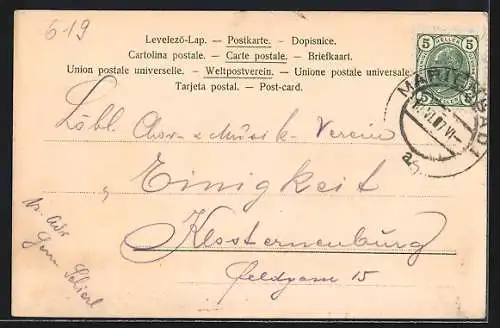 6-19
Levelező-Lap. — Postkarte. — Dopisnice.
Cartolina postale. — Carte postale. — Briefkaart.
Union postale universelle. — Weltpostverein. — Unione postale universale
Tarjeta postal. — Post-card.
5 HELLER 5
5 5
MARIENBAD 1
07
Löbl. Chor- & Musik-Verein
"Einigkeit
Klosterneuburg
Feldgasse 15
Herrn